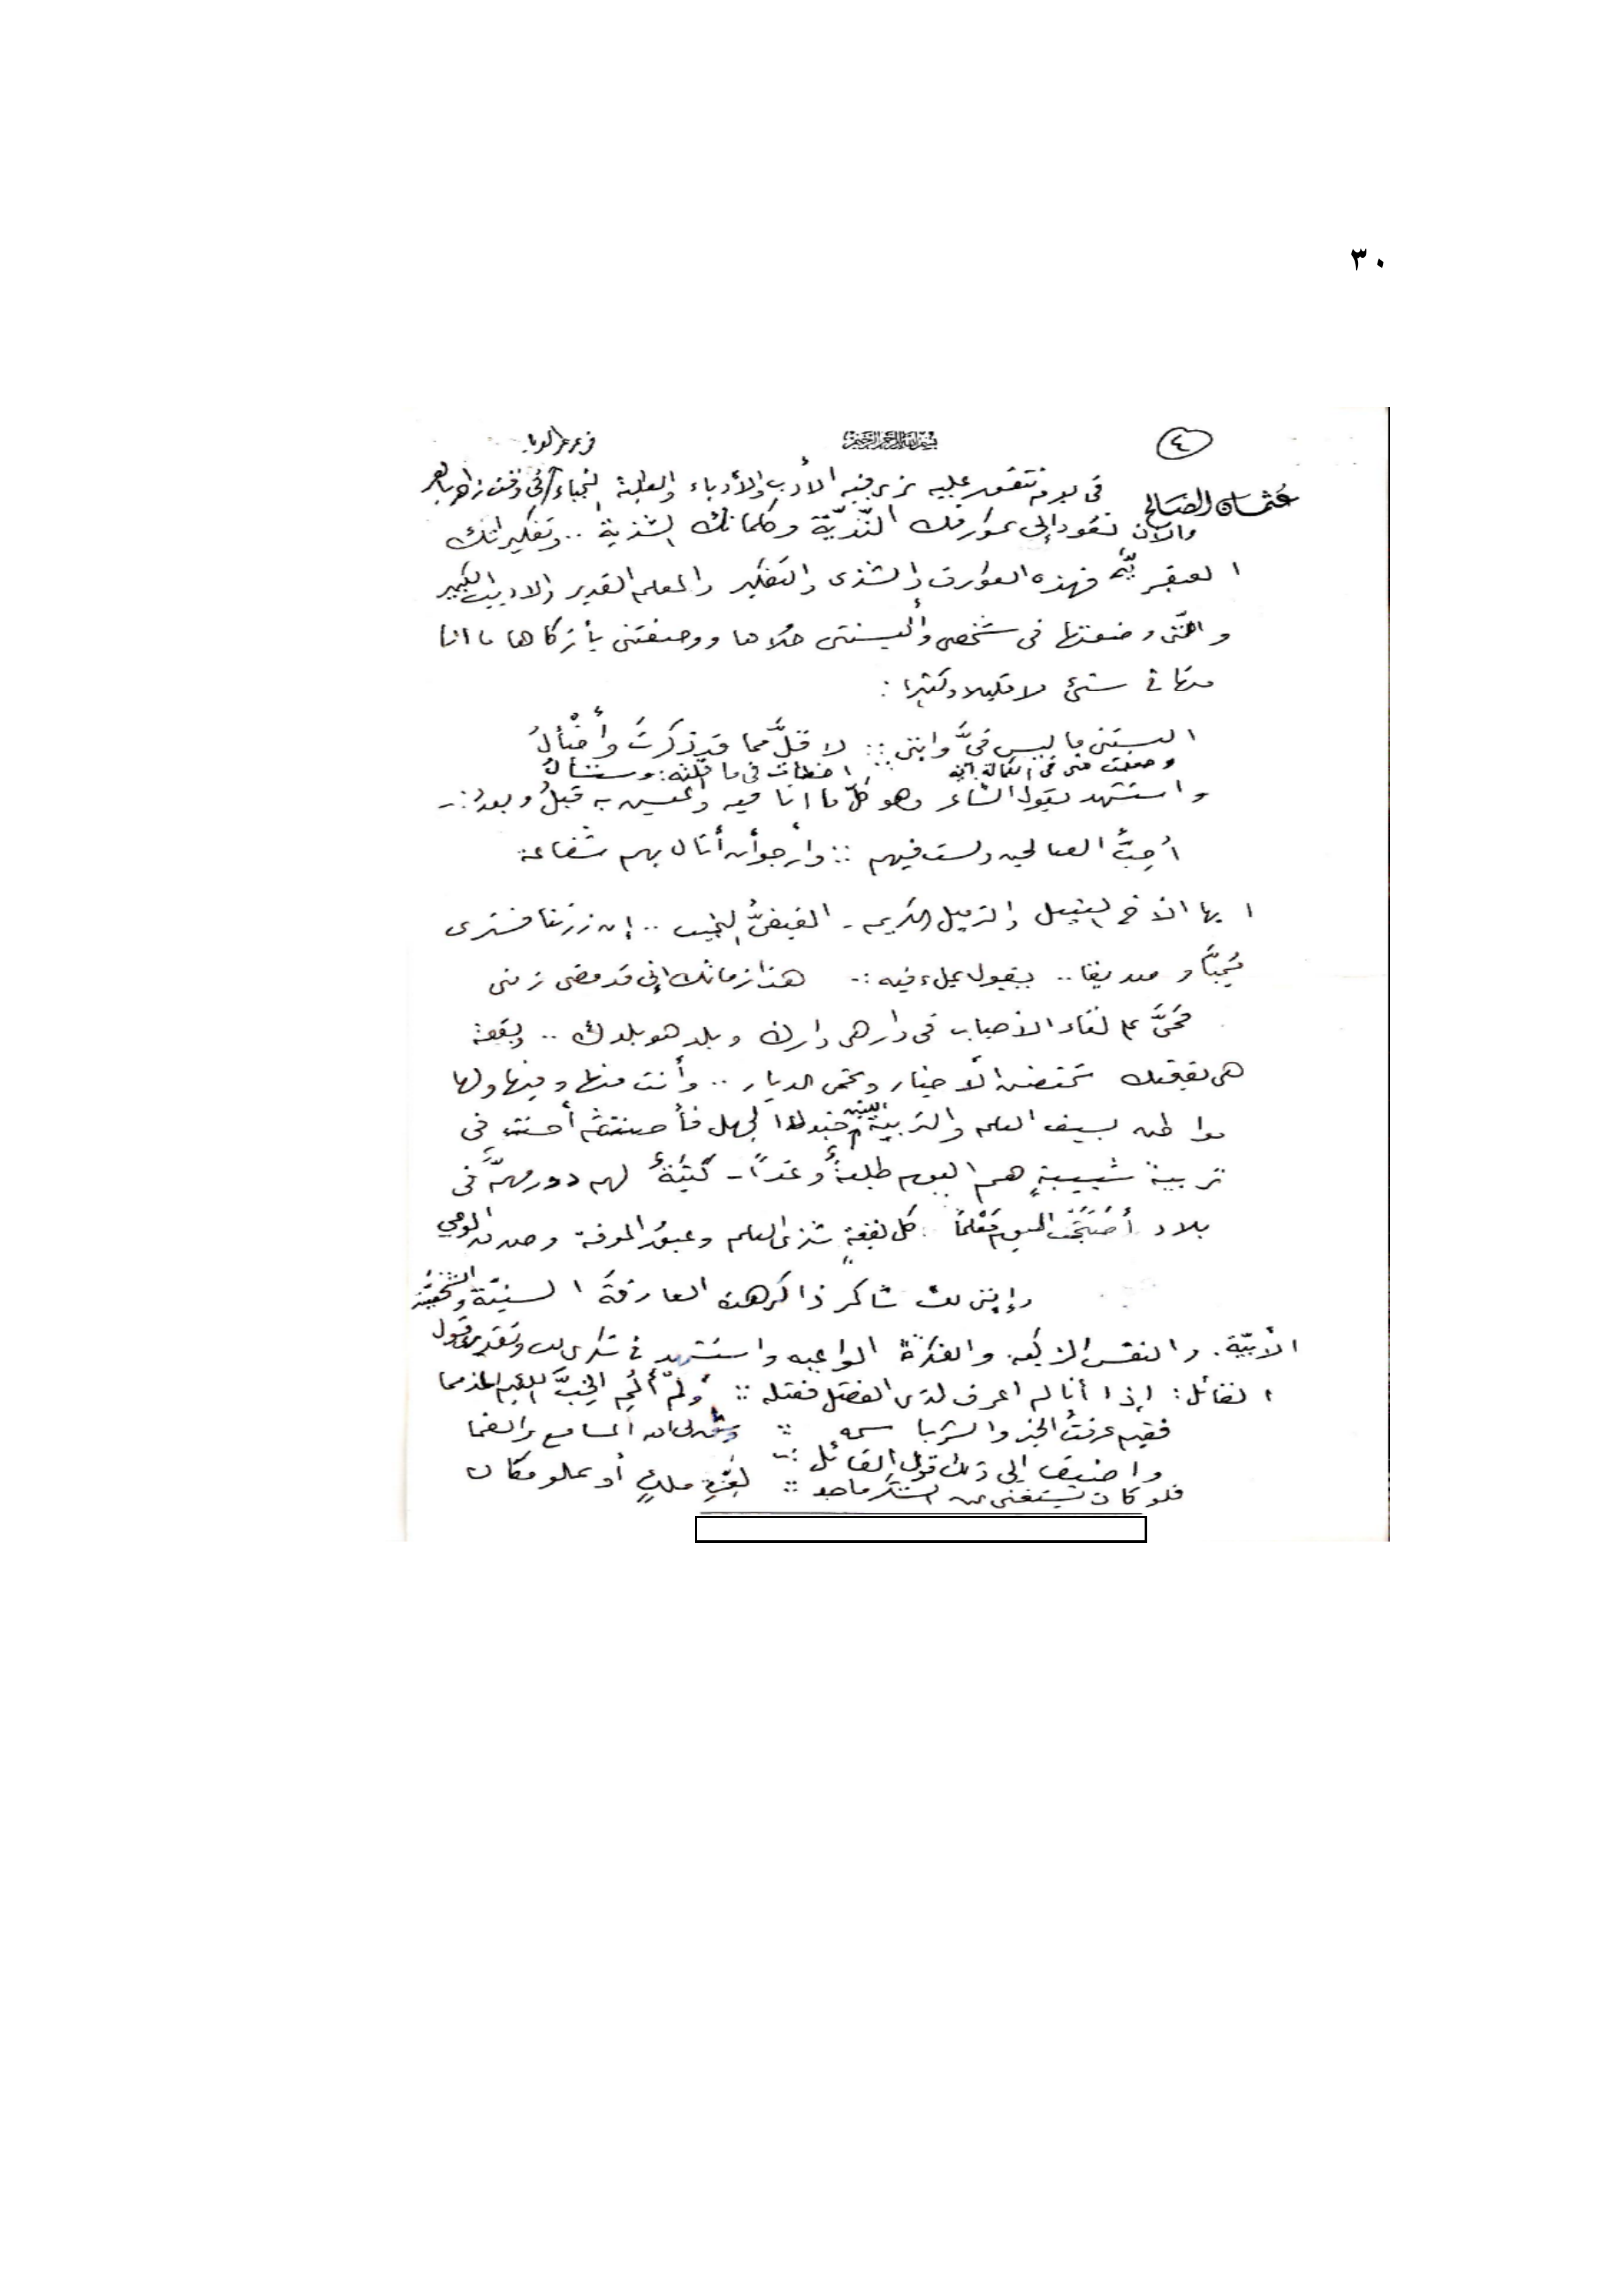 ٣٠
٤
بسم الله الرحمن الرحيم
عثمان الصالح
في يوم نتفق عليه نرى فيه الأدب والأدباء والطلبة النجباء في وقت زاهر باهر
والآن نعود إلى عوارفك النّديّة وكلماتك الشذية .. وتفكيراتك
العبقريّة فهذه العوارف والشذى والتفكير والمعلم القدير والاديب الكبير
والتي وضعتها في شخصي وألبستني حُلاها ووصفتني بأزكاها ما انا
منها في شيء لا قليلا وكثيرا :
البستني ما ليس فيَّ وإنني :: لا قلَّ مما قد ذكرتَ وأضْألُ
اخطأت في ما قلته: وستسأل
واستشهد بقول الشاعر وهو كلّ ما انا فيه والمعين به قبلُ وبعدُ :-
أُحِبُّ الصالحين ولست فيهم :: وأرجو أن أنال بهم شفاعة
ايها الاخ النبيل والزميل الكريم - الفيضُ النجيب .. إن زرتنا فسترى
مُحِبَّاً وصديقا .. يقول بملء فيه :- هذا زمانك إني قد مضى زمني
لقاء الاحباب في دار هي دارك وبلد هو بلدك .. وبقعة
هي بقعتك تحتضن الأخيار وتحمي الديار .. وأنت منها وفيها ولها
مواطن بسيف العلم والتربية الجهل فأحسنت ثم أحسنت في
تربية شبيبةٍ هم اليوم طلعةٌ وغداً - لهم دور مهمّ في
بلاد أضحت اليوم مَعْلماً : كل بقعةٍ شذى العلم وعبق المعرفة وصدق الوعي
وإنني لك شاكر ذاكر هذه العارفةَ السنيّة والشخصيّة
الأبيّة . والنفس الزكية والفكرة الواعية واستشهد في شكري لك وتقديري بقول
القائل : إذا أنا لم اعرف لذي الفضل فضله :: ولمْ ألُمِ الخِبَّ اللئيم المذمما
ففيم عرفتُ الخير والشر باسمه :: وشق لي الله المسامع والفما
واضيف إلى ذلك قول القائل :-
فلو كان يستغني عن الشكر ماجد :: لعزّةِ ملكٍ أو علو مكان